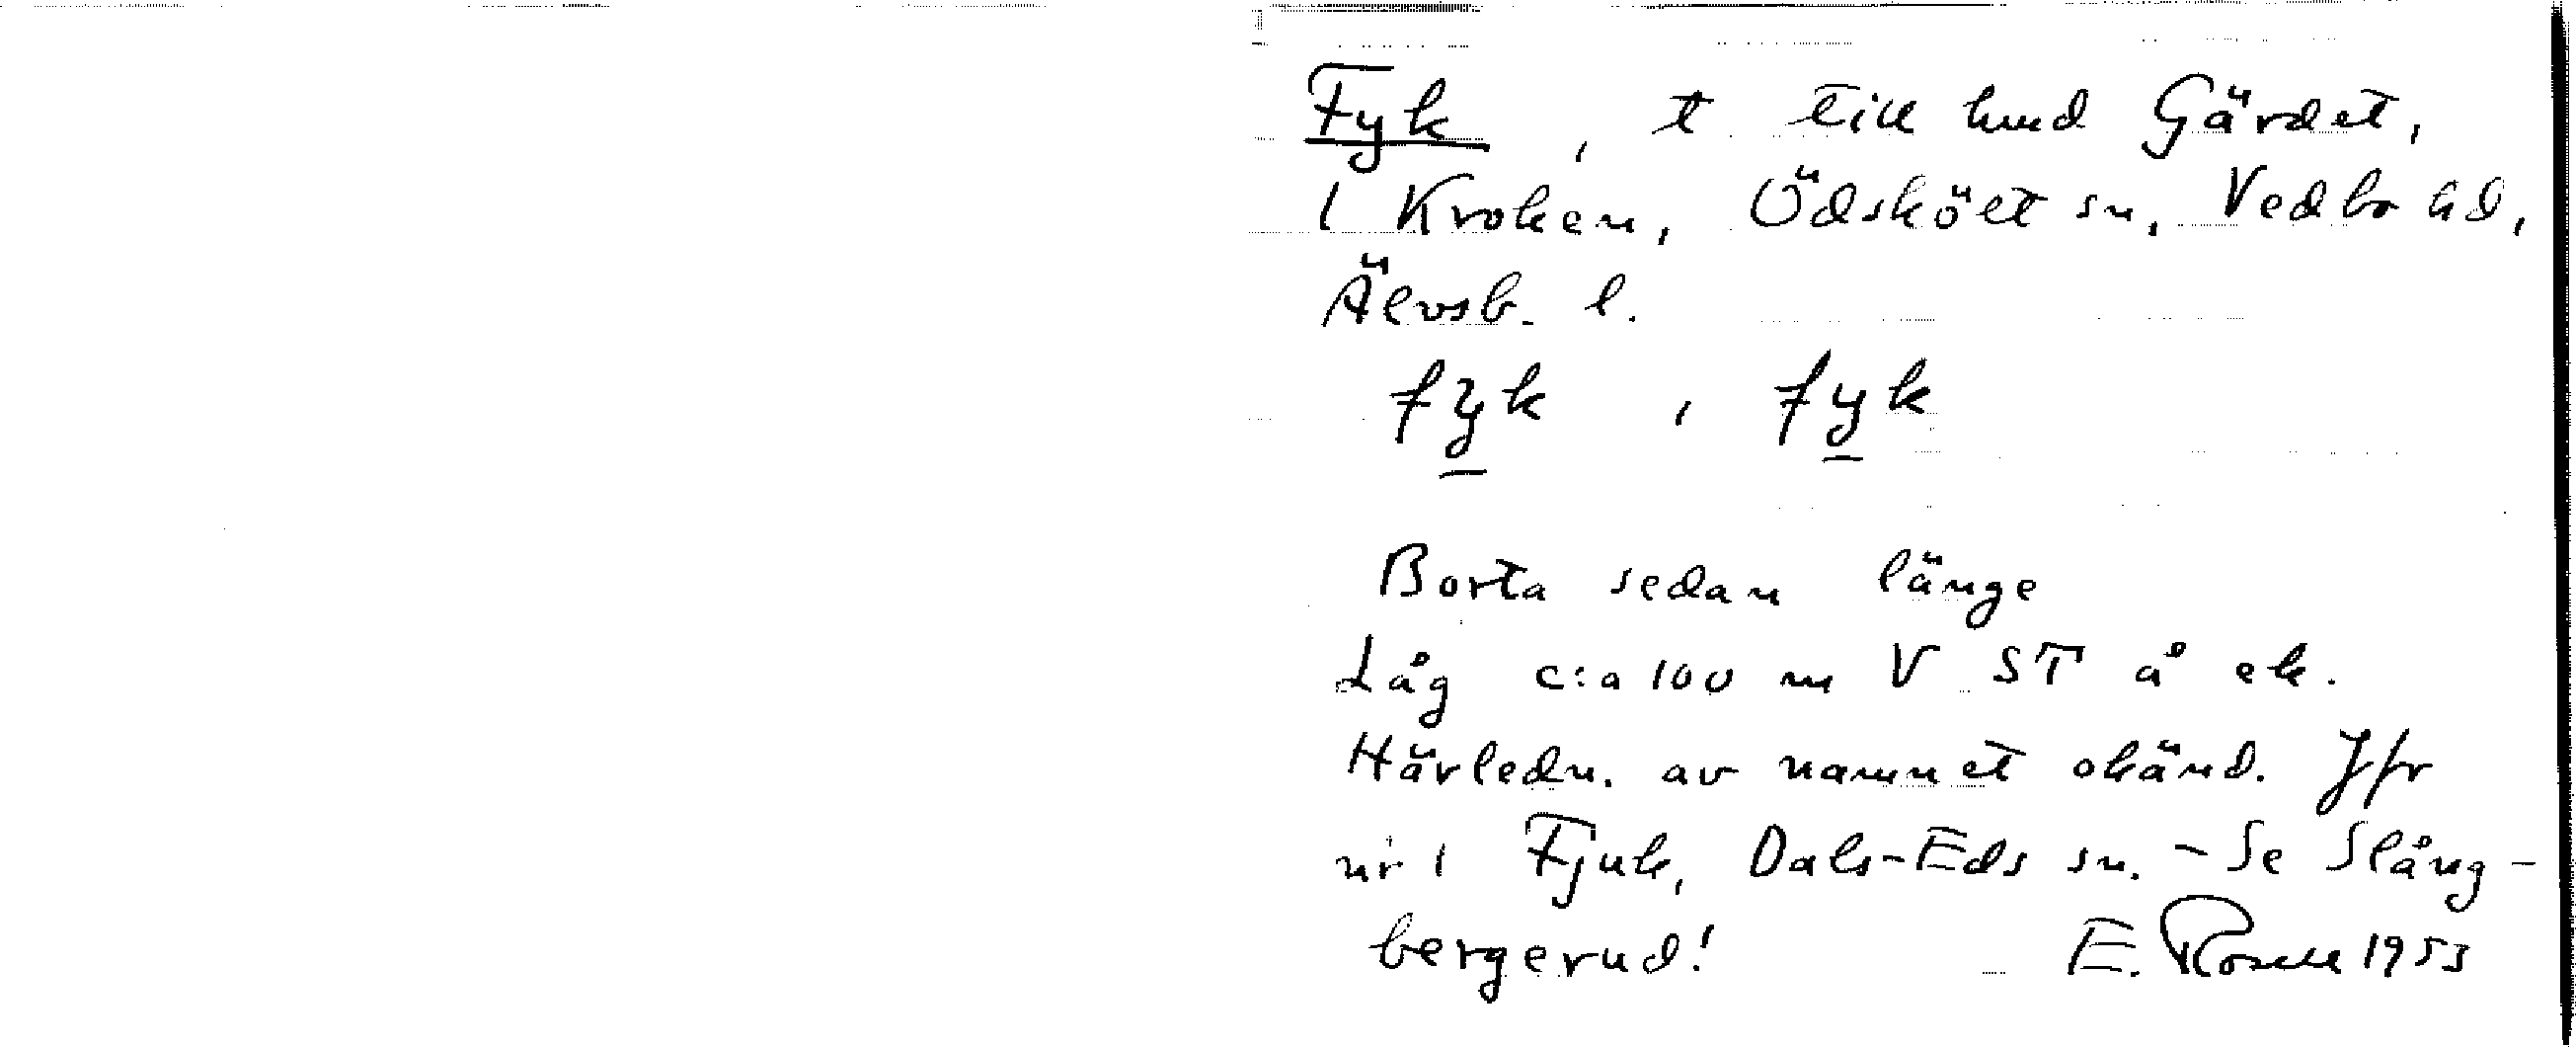 Fyk, t till hmd Gärdet,
1 Kroken, Ödsköĺt sn, Vedbo hd,
Älvsb. l.
fyk, fyk
Borta sedan länge
Låg c:a 100 m V ST å ek.
Härledn. av namnet okänd. Jfr
nr 1 Fjuk, Dals-Eds sn. - Se Slång-
bergerud! E. Rosell 1953